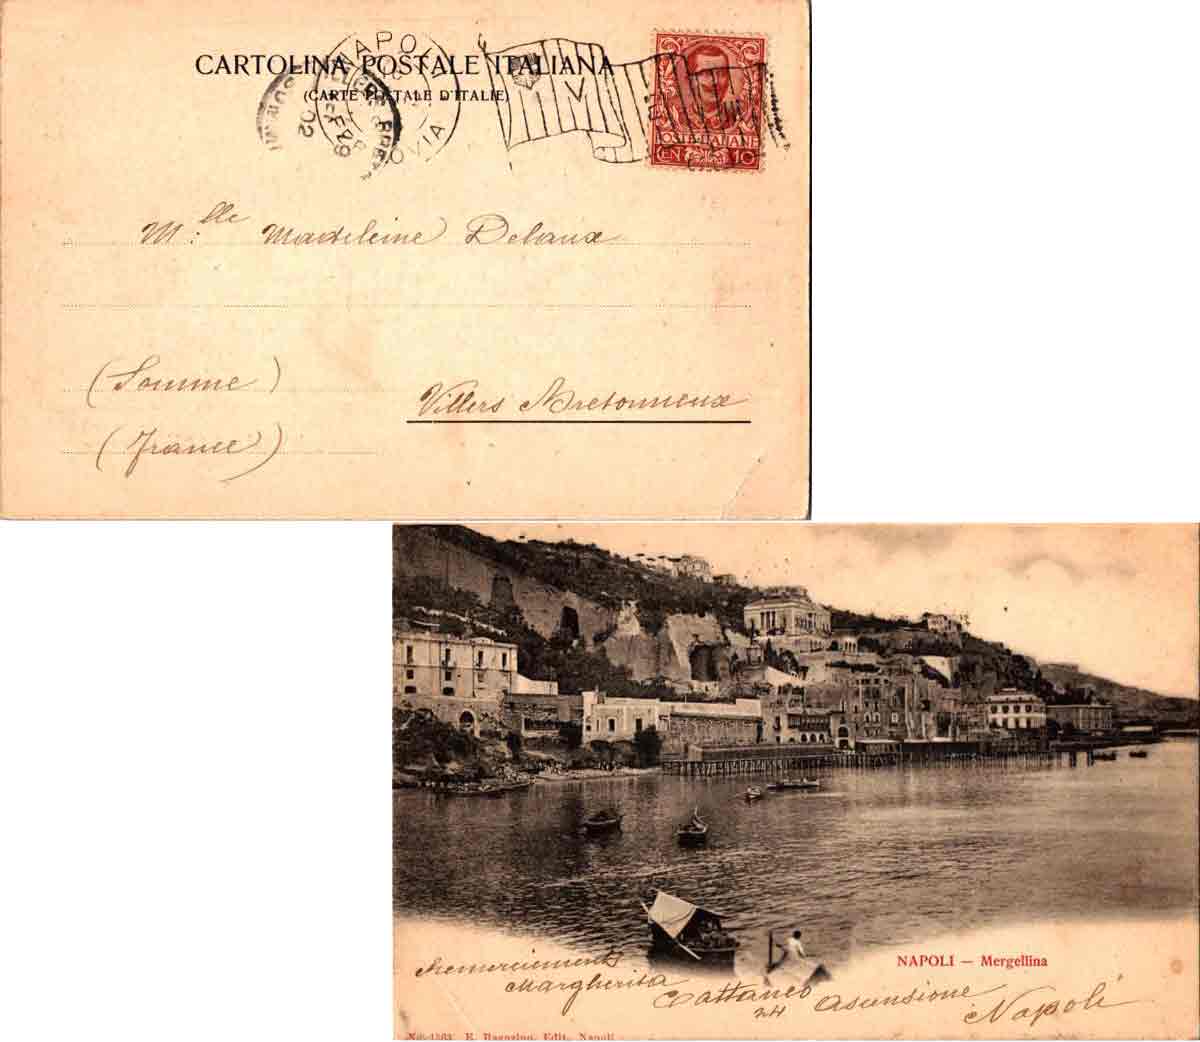 CARTOLINA POSTALE ITALIANA
(CARTE POSTALE D'ITALIE)
NAPOLI
02
POSTE ITALIANE
CEN 10
M.lle Madeleine Delaux
(Somme)
Villers Bretonneux
(France)
NAPOLI — Mergellina
Remerciements
Margherita Cattaneo
24 Ascensione
Napoli
E. Ragozino, Edit. Napoli